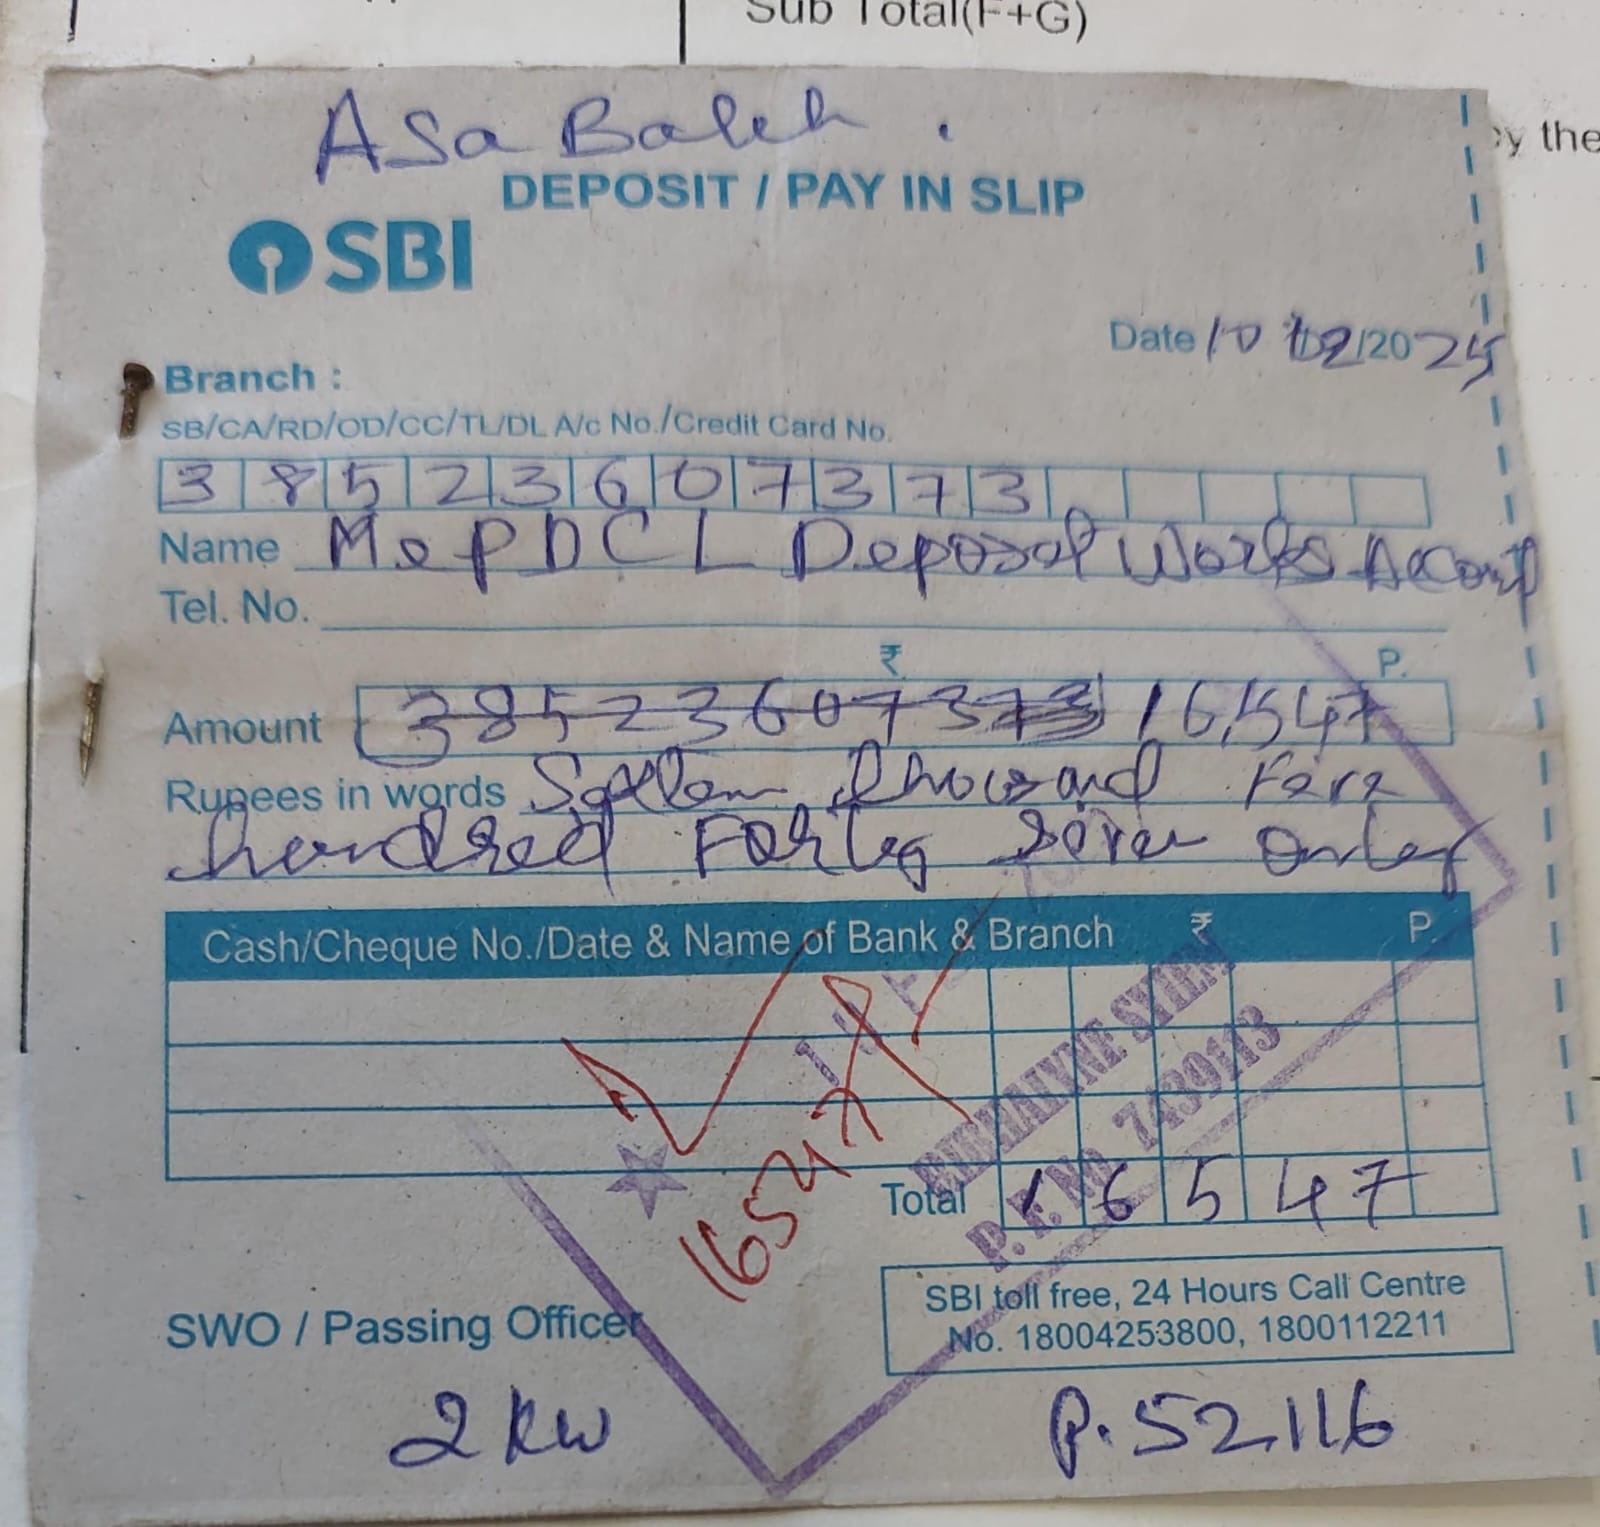 Sub Total(F+G)
y the
Asa Baleh .
DEPOSIT / PAY IN SLIP
SBI
Date 10/02/2025
Branch :
SB/CA/RD/OD/CC/TL/DL A/c No./Credit Card No.
3 8 5 2 3 6 0 7 3 7 3
Name MePDCL Deposit Works Account
Tel. No.
₹ P.
Amount 38523607373 16,547
Rupees in words Sixteen Thousand Five
hundred Forty Seven Only
Cash/Cheque No./Date & Name of Bank & Branch ₹ P.
16547
SYIEM
P. F. No. 7439113
Total 1 6 5 4 7
SBI toll free, 24 Hours Call Centre
No. 18004253800, 1800112211
SWO / Passing Officer
2 kw
P. 52116